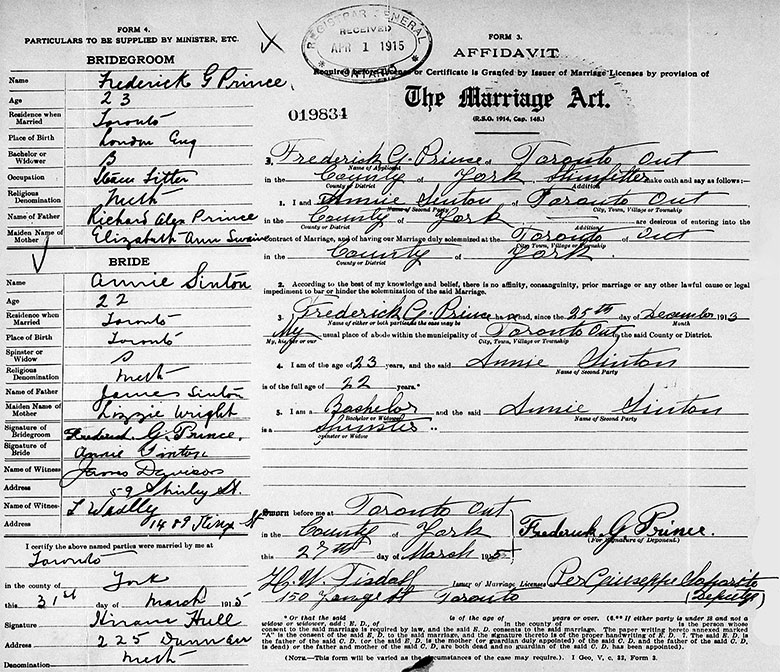 FORM 4.
PARTICULARS TO BE SUPPLIED BY MINISTER, ETC.
BRIDEGROOM
Name Frederick G Prince
Age 23
Residence when Married Toronto
Place of Birth London Eng
Bachelor or Widower B
Occupation Steam Fitter
Religious Denomination Meth
Name of Father Richard Alex Prince
Maiden Name of Mother Elizabeth Ann Swaine
BRIDE
Name Annie Sinton
Age 22
Residence when Married Toronto
Place of Birth Toronto
Spinster or Widow S
Religious Denomination Meth
Name of Father James Sinton
Maiden Name of Mother Lizzie Wright
Signature of Bridegroom Frederick. G. Prince,
Signature of Bride Annie Sinton
Name of Witness James Davison
Address 59 Shirley St.
Name of Witness L Wadlly
Address 1489 King St
I certify the above named parties were married by me at
Toronto
in the county of York
this 31st day of March 1915
Signature Hiram Hull
225 Dunn av
Meth
REGISTRAR GENERAL
RECEIVED
APR 1 1915
ONTARIO
FORM 3.
AFFIDAVIT
Required before License or Certificate is Granted by Issuer of Marriage Licenses by provision of
The Marriage Act.
(R.S.O. 1914, Cap. 148.)
019834
I, Frederick G. Prince of Toronto Ont
Name of Applicant
in the County of York Steamfitter make oath and say as follows:—
County or District Addition
1. I and Annie Sinton of Toronto Ont
Name of Second Party City, Town, Village or Township
in the County of York are desirous of entering into the
County or District Addition
contract of Marriage, and of having our Marriage duly solemnized at the Toronto of Ont
City, Town, Village or Township
in the County of York.
County or District
2. According to the best of my knowledge and belief, there is no affinity, consanguinity, prior marriage or any other lawful cause or legal
impediment to bar or hinder the solemnization of the said Marriage.
3. Frederick G. Prince has had, since the 25th day of December 1913
Name of either or both parties as the case may be Month
My usual place of abode within the municipality of Toronto Ont the said County or District.
My, his, her or our City, Town, Village or Township
4. I am of the age of 23 years, and the said Annie Sinton
Name of Second Party
is of the full age of 22 years.*
5. I am a Bachelor and the said Annie Sinton
Bachelor or Widower Name of Second Party
is a Spinster **
Spinster or Widow
SWORN before me at Toronto Ont
in the County of York
this 27th day of March 1915
Frederick G Prince.
(For Signature of Deponent.)
H. W. Tisdall Issuer of Marriage Licenses Per Giuseppe Saporito
150 Yonge St Toronto (Deputy)
* Or that the said is of the age of years or over. (6.** If either party is under 18 and not a
widow or widower, add: E. D., of in the county of is the person whose
consent to the said marriage is required by law, and the said E. D. consents to the said marriage. The paper writing hereto annexed marked
"A" is the consent of the said E. D. to the said marriage, and the signature thereto is of the proper handwriting of E. D. 7. The said E. D. is
the father of the said C. D. (or the said E. D. is the mother (or guardian duly appointed) of the said C. D., the father of the said C. D.
is dead) or the father and mother of the said C. D. are both dead and no guardian of the said C. D. has been appointed).
(NOTE.—This form will be varied as the circumstances of the case may require.) 1 Geo. V, c. 32, Form 3.